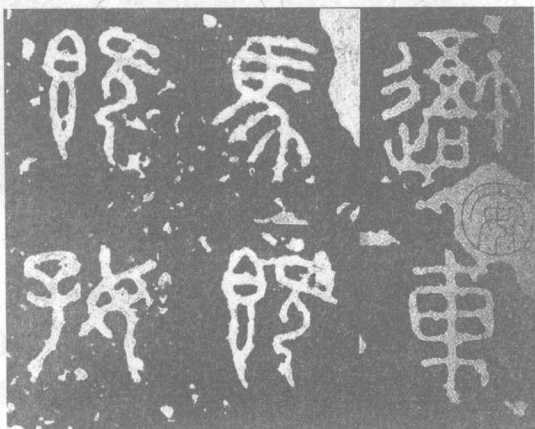 車
馬既
既好